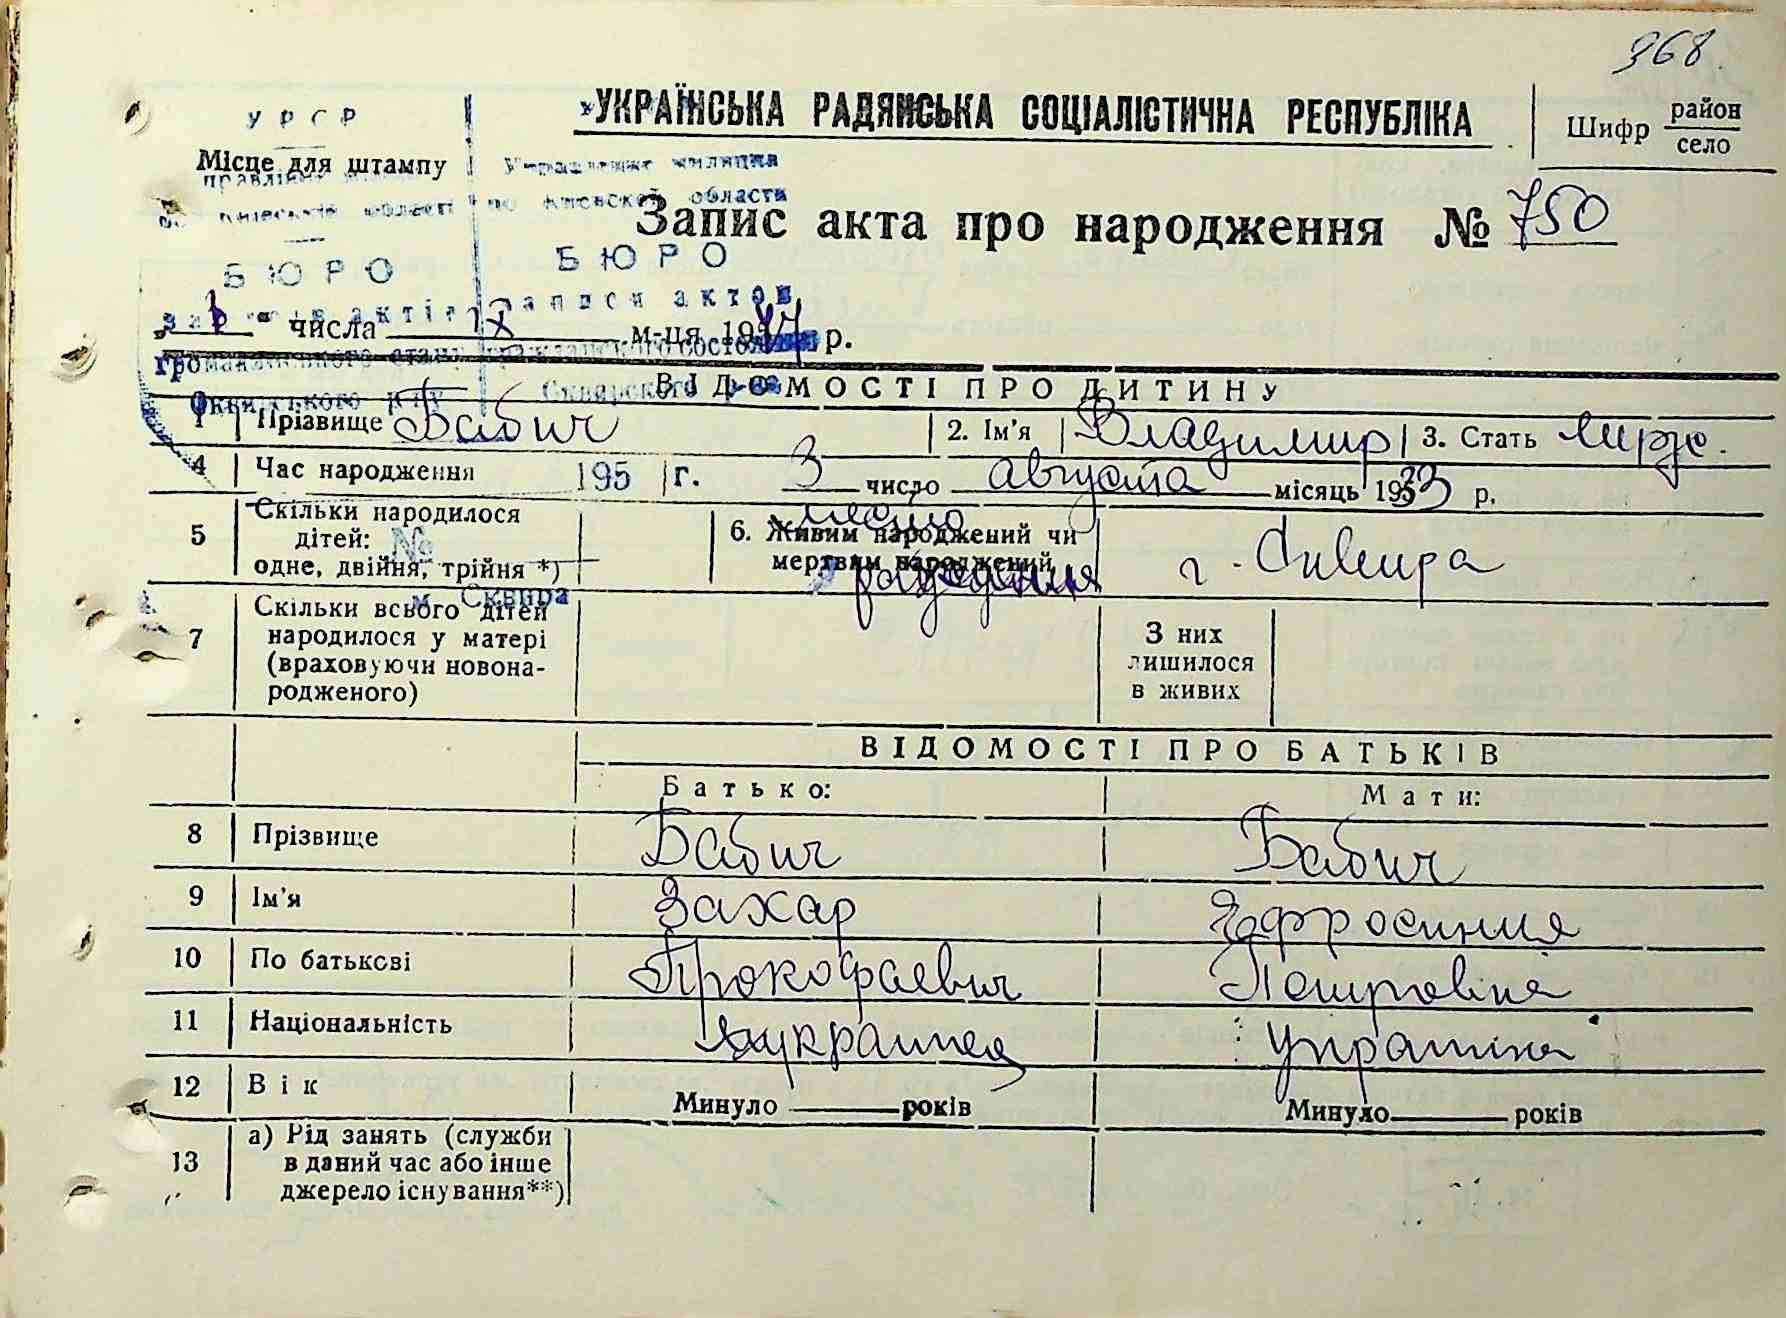 368
УКРАЇНСЬКА РАДЯНСЬКА СОЦІАЛІСТИЧНА РЕСПУБЛІКА
Шифр район
село
УРСР
Місце для штампу
Управление милиции
по Киевской области
Запис акта про народження № 750
БЮРО
БЮРО
записи актов
числа IX м-ця 19 р.
громадянського стану гражданского состояния
Сквирського р-ну Сквирского р-на
ВІДОМОСТІ ПРО ДИТИНУ
1 Прізвище Бабич 2. Ім'я Владимир 3. Стать муж.
4 Час народження 195 г. 3 число августа місяць 19 р.
5 Скільки народилося дітей: одне, двійня, трійня *)
№
6. Живим народжений чи мертвим народжений
место рождения
г. Сквира
м. Сквира
7 Скільки всього дітей народилося у матері (враховуючи новонародженого)
З них лишилося в живих
ВІДОМОСТІ ПРО БАТЬКІВ
Батько: Мати:
8 Прізвище Бабич Бабич
9 Ім'я Захар Ефросиния
10 По батькові Прокофаевич Петровна
11 Національність украинец украинка
12 Вік Минуло років Минуло років
13 а) Рід занять (служби
в даний час або інше
джерело існування**)